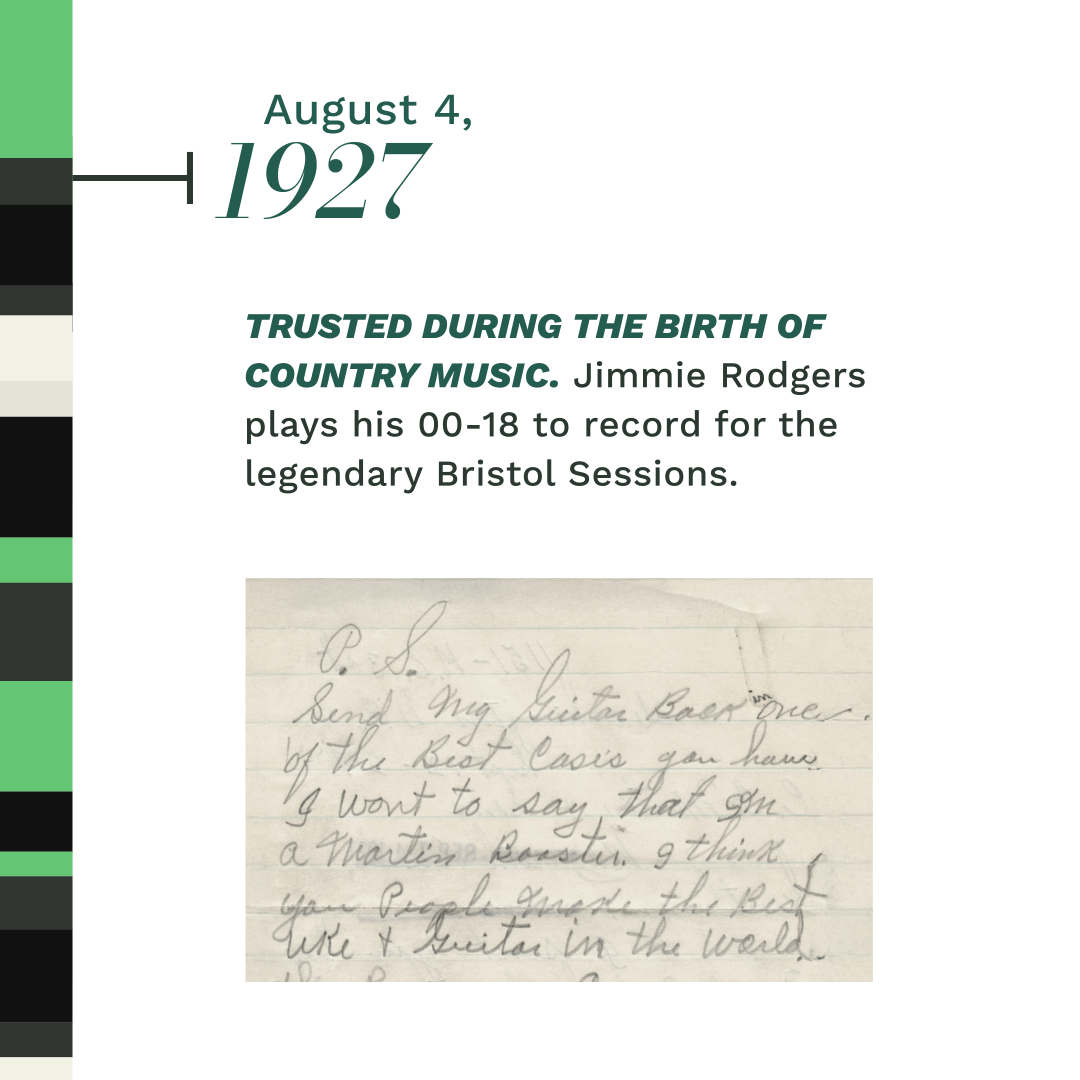 August 4,
1927
TRUSTED DURING THE BIRTH OF
COUNTRY MUSIC. Jimmie Rodgers
plays his 00-18 to record for the
legendary Bristol Sessions.
P. S.
Send My Guitar Back in one
of the Best Cases you have
I wont to say that Im
a Martin Booster. I think
you People make the Best
Uke + Guitar in the world.